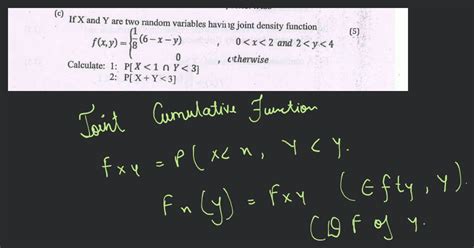 (c) If X and Y are two random variables having joint density function (5)
f(x,y) = { 1/8 (6 − x − y) , 0 < x < 2 and 2 < y < 4
0 , otherwise
Calculate: 1: P[X < 1 ∩ Y < 3]
2: P[X + Y < 3]
Joint Cumulative Function
f x y = P ( x < n, Y < y.
F n (y) = F x y ( ∈ f t y, y ).
CD F of y.